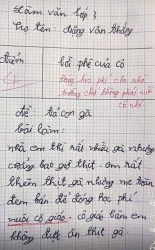 Làm văn lớp 3
Họ tên: Đặng văn thắng
điểm
lời phê của cô
đóng học phí cho nhà
trường chứ không phải nuôi
cô nhé!
đề tả con gà
bài làm:
nhà em thì rất nhiều gà nhưng
chẳng bao giờ thịt. em rất
thèm thịt gà nhưng mẹ toàn
đem bán để đóng học phí
nuôi cô giáo. cô giáo làm em
không được ăn thịt gà